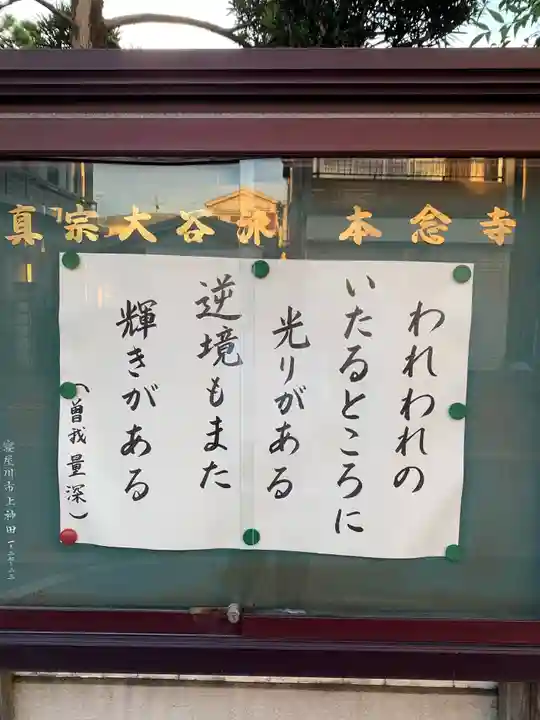 真宗大谷派 本念寺
われわれの
いたるところに
光りがある
逆境もまた
輝きがある
（曽我量深）
寝屋川市上神田一ー二七ー二三